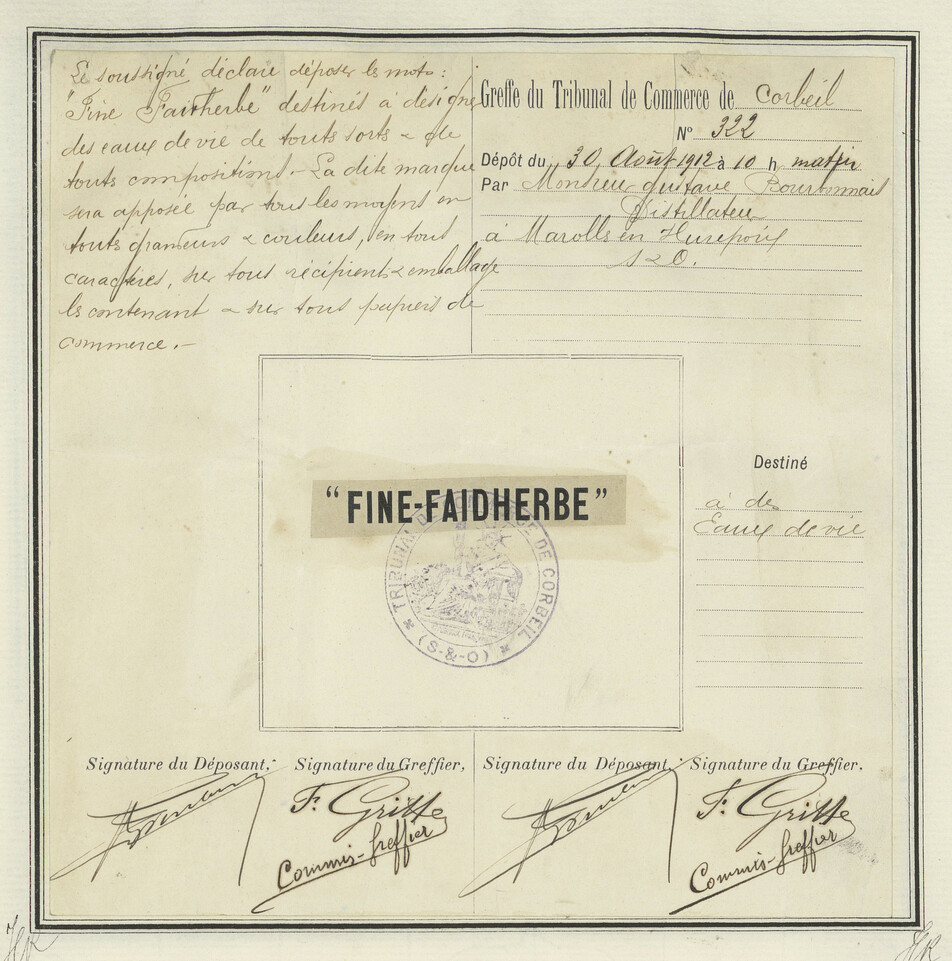 Le soussigné déclare déposer les mots :
"Fine Faidherbe" destinés à désigner
des eaux de vie de touts sorts & de
touts compositions. - La dite marque
sera apposée par tous les moyens en
touts grandeurs & couleurs, en tous
caractères, sur tous récipients & emballage
les contenant & sur tous papiers de
commerce. -
Greffe du Tribunal de Commerce de Corbeil
N° 322
Dépôt du 30 Août 1912 à 10 h matin
Par Monsieur Gustave Bourbonnais
Distillateur
à Marolls en Hurepoix
S & O.
"FINE-FAIDHERBE"
TRIBUNAL DE COMMERCE DE CORBEIL
(S-&-O)
Destiné
à des
Eaux de vie
Signature du Déposant, Signature du Greffier, Signature du Déposant, Signature du Greffier,
F. Gritte
Commis-Greffier
F. Gritte
Commis-Greffier